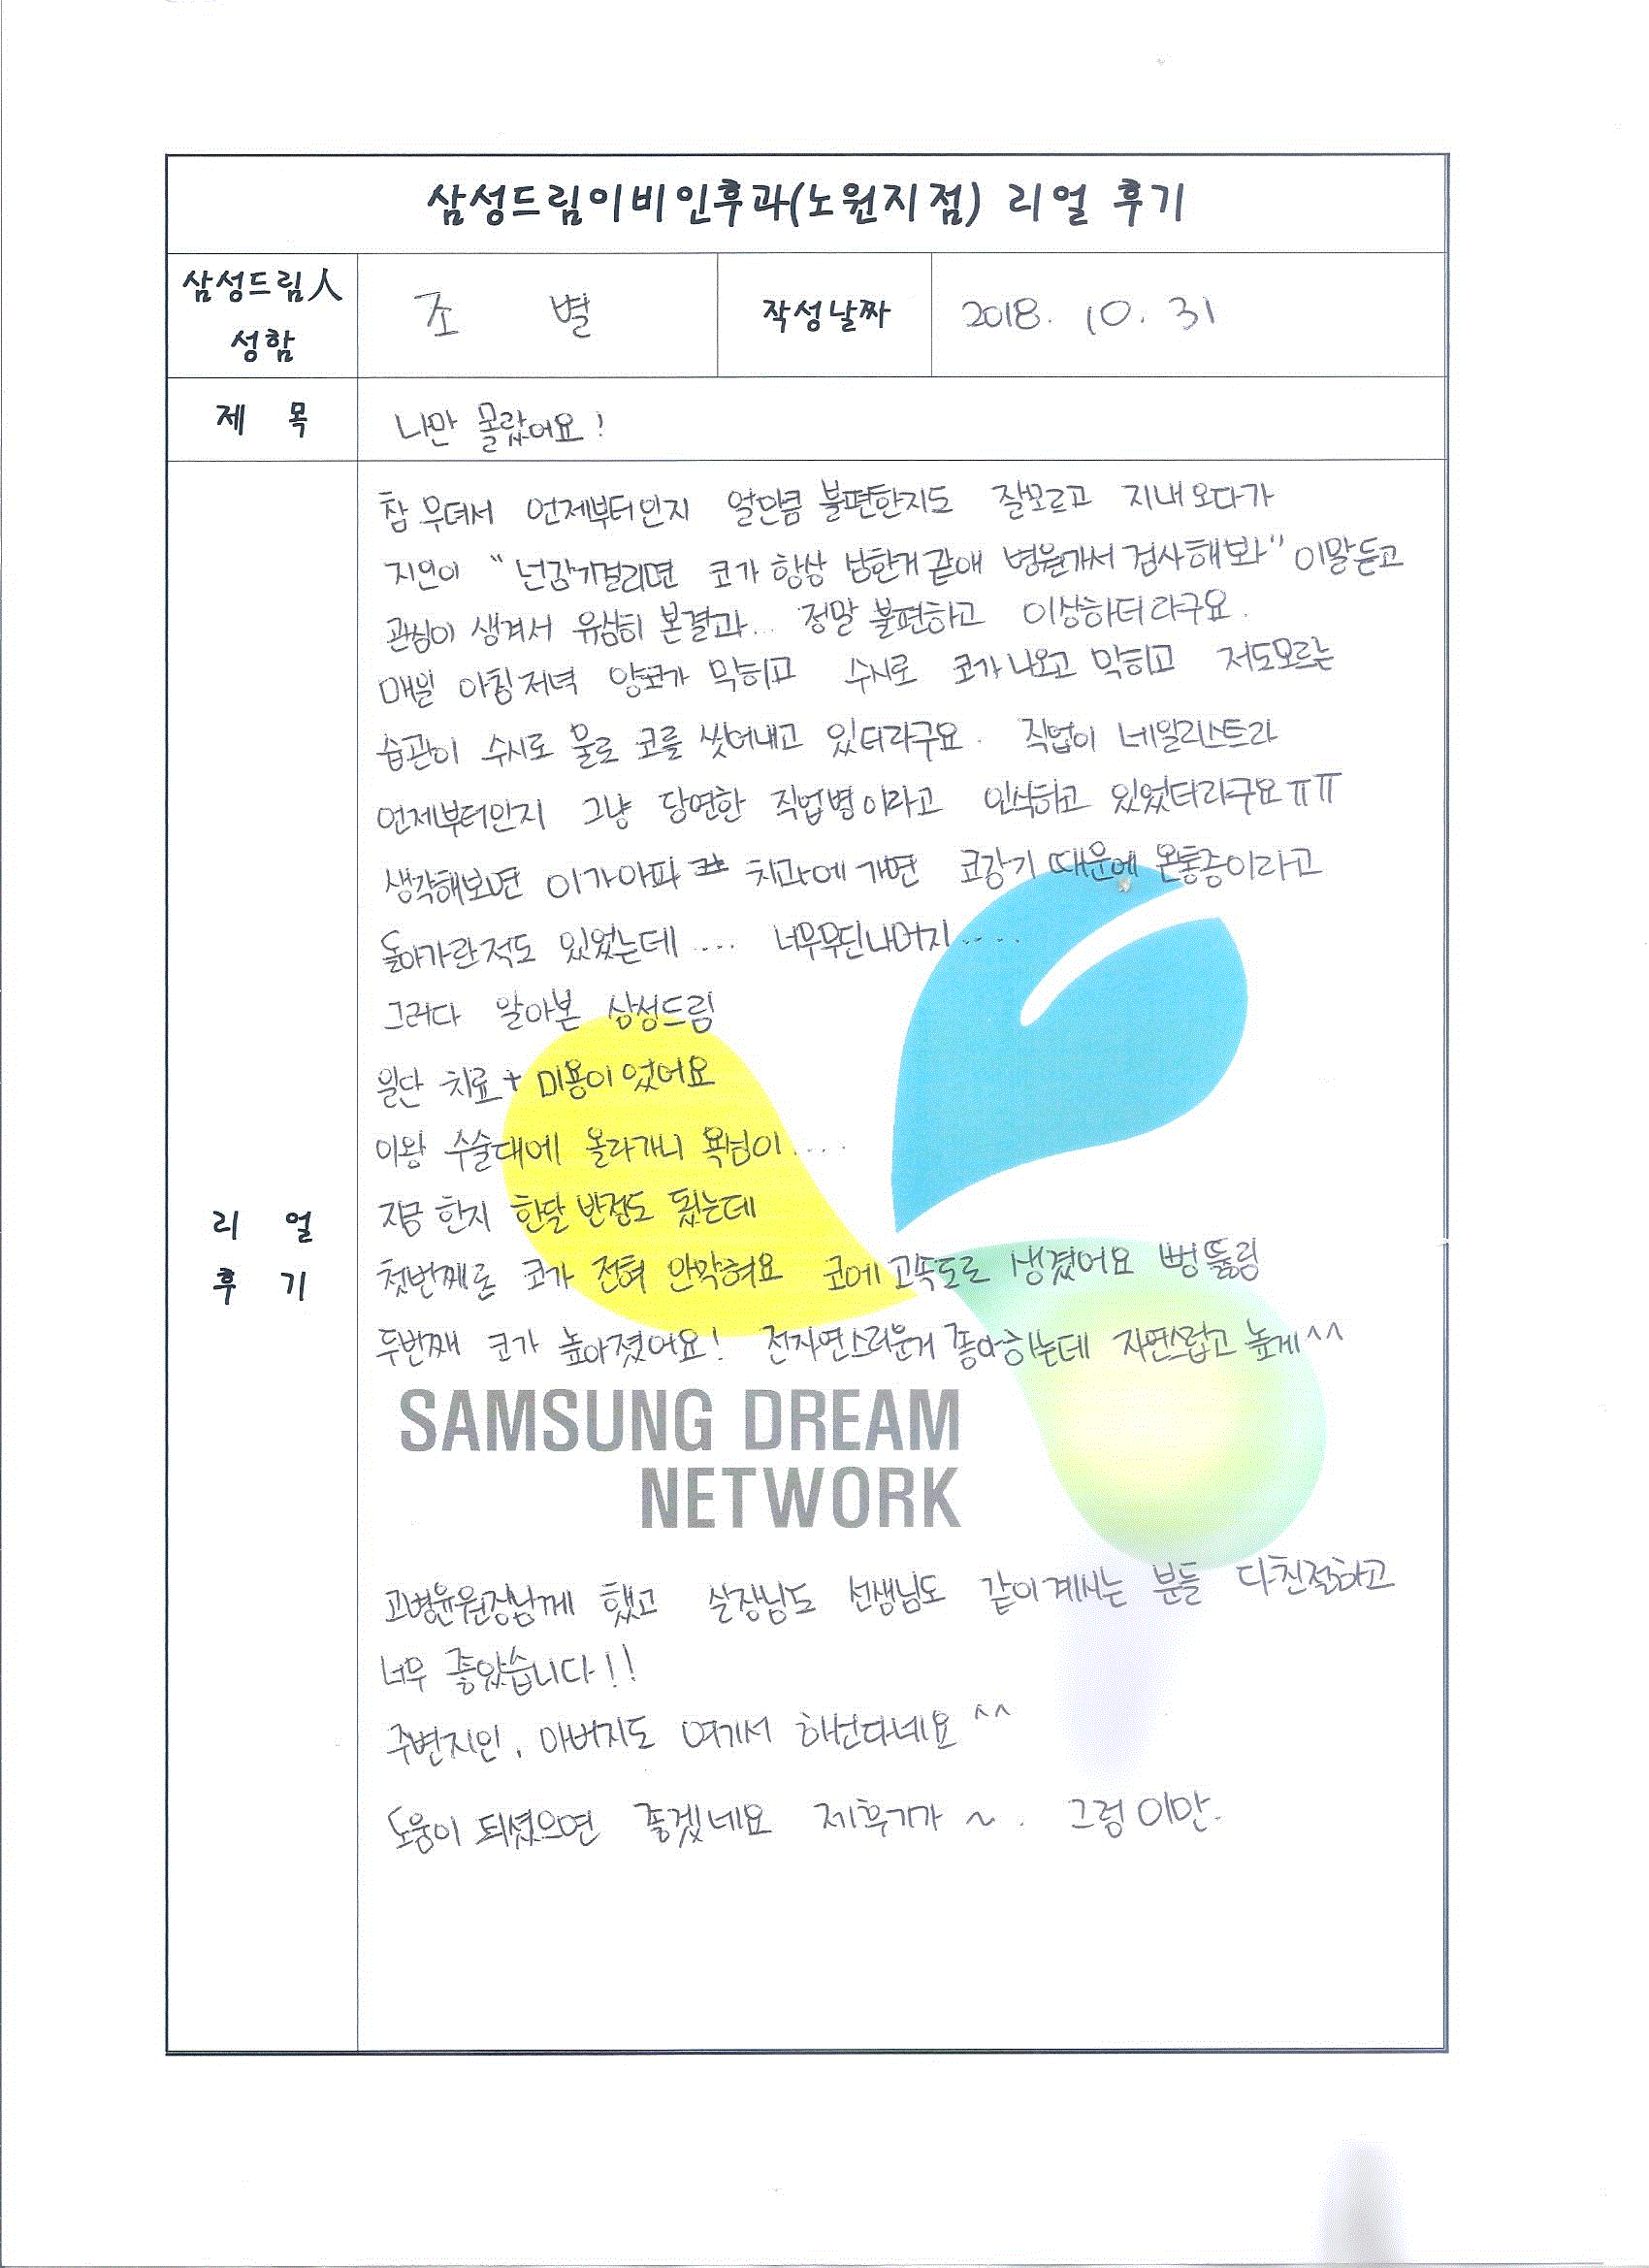 삼성드림이비인후과(노원지점) 리얼 후기
삼성드림人
성함
조 별
작성날짜
2018. 10. 31
제 목
나만 몰랐어요!
참 무뎌서 언제부터인지 얼만큼 불편한지도 잘모르고 지내오다가
지인이 "넌감기걸리면 코가 항상 심한거 같애 병원가서 검사해봐" 이말듣고
관심이 생겨서 유심히 본결과... 정말 불편하고 이상하더라구요.
매일 아침저녁 양코가 막히고 수시로 코가나오고 막히고 저도모르는
습관이 수시로 물로 코를 씻어내고 있더라구요. 직업이 네일리스트라
언제부터인지 그냥 당연한 직업병이라고 인식하고 있었더라구요ㅠㅠ
생각해보면 이가아파 치과에가면 코감기 때문에 온통증이라고
돌아가란적도 있었는데.... 너무무딘나머지.....
그러다 알아본 삼성드림
일단 치료+미용이었어요
이왕 수술대에 올라가니 욕심이....
지금 한지 한달 반정도 됬는데
첫번째론 코가 전혀 안막혀요 코에고속도로 생겼어요 뻥뚫림
두번째 코가 높아졌어요! 전자연스러운거 좋아하는데 자연스럽고 높게^^
SAMSUNG DREAM
NETWORK
고병윤원장님께 했고 실장님도 선생님도 같이계시는 분들 다친절하고
너무 좋았습니다!!
주변지인, 아버지도 여기서 하신다네요^^
도움이 되셨으면 좋겠네요 제후기가~. 그럼이만.
리 얼
후 기